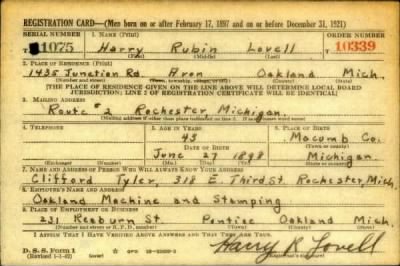 REGISTRATION CARD—(Men born on or after February 17, 1897 and on or before December 31, 1921)
SERIAL NUMBER 1. NAME (Print) ORDER NUMBER
1075 Harry Rubin Lovell 10339
(First) (Middle) (Last)
2. PLACE OF RESIDENCE (Print)
1435 Junction Rd Avon Oakland Mich.
(Number and street) (Town, township, village, or city) (County) (State)
[THE PLACE OF RESIDENCE GIVEN ON THE LINE ABOVE WILL DETERMINE LOCAL BOARD
JURISDICTION; LINE 2 OF REGISTRATION CERTIFICATE WILL BE IDENTICAL]
3. MAILING ADDRESS
Route #2 Rochester Michigan.
[Mailing address if other than place indicated on line 2. If same insert word same]
4. TELEPHONE 5. AGE IN YEARS 6. PLACE OF BIRTH
43 Macomb Co.
DATE OF BIRTH (Town or county)
June 27 1898 Michigan.
(Exchange) (Number) (Mo.) (Day) (Yr.) (State or country)
7. NAME AND ADDRESS OF PERSON WHO WILL ALWAYS KNOW YOUR ADDRESS
Clifford Tyler, 318 E. Third St. Rochester, Mich.
8. EMPLOYER'S NAME AND ADDRESS
Oakland Machine and Stamping
9. PLACE OF EMPLOYMENT OR BUSINESS
231 St Pontiac Oakland Mich.
(Number and street or R. F. D. number) (Town) (County) (State)
I AFFIRM THAT I HAVE VERIFIED ABOVE ANSWERS AND THAT THEY ARE TRUE.
D. S. S. Form 1
(Revised 1-1-42) (over) GPO
Harry R Lovell